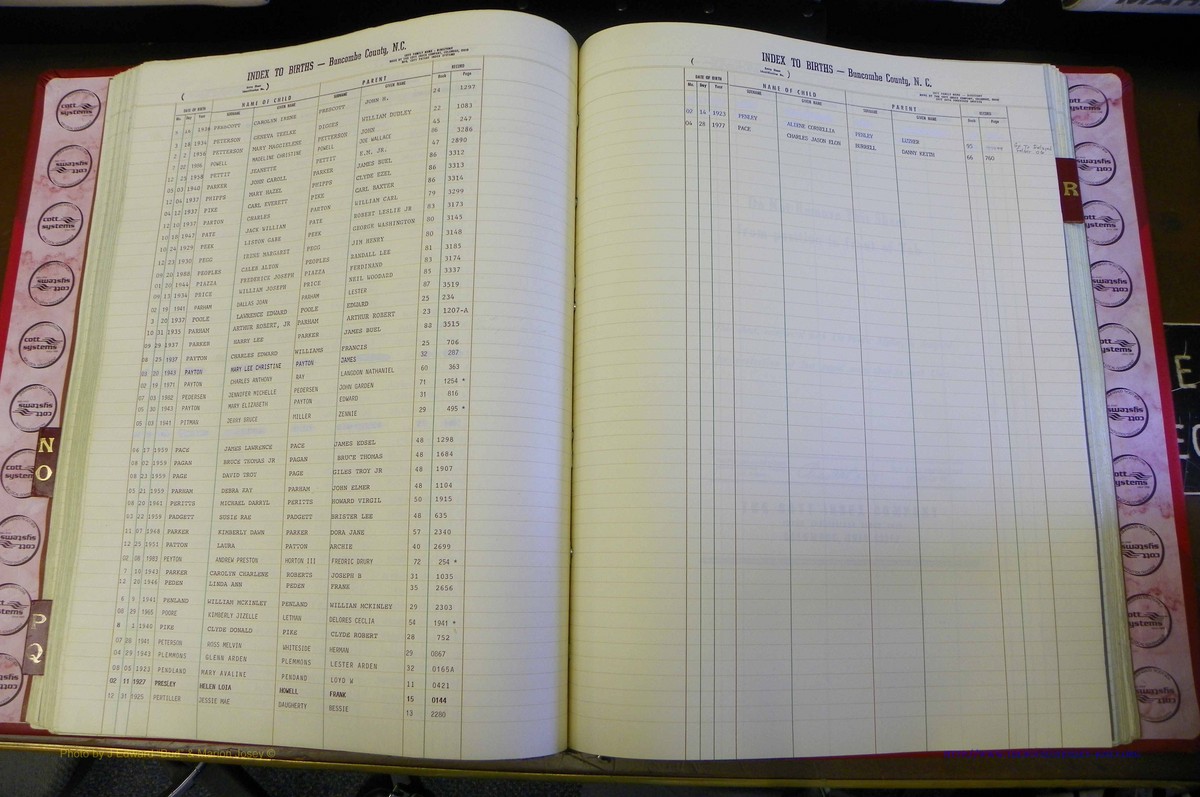 INDEX TO BIRTHS — Buncombe County, N.C.
DATE OF BIRTH NAME OF CHILD PARENT RECORD
Mo. Day Year SURNAME GIVEN NAME SURNAME GIVEN NAME Book Page
PRESCOTT CAROLYN IRENE PRESCOTT JOHN H. 24 1297
3 18 1934 PETERSON GENEVA TEELEE DIGGER WILLIAM DUDLEY 22 1083
2 2 1956 PETTERSON MARY MAGGIELENE PETTERSON JOHN 45 247
POWELL MADELINE CHRISTINE POWELL JOE WALACE 06 3286
12 25 1958 PETTIT JEANETTE PETTIT E.M. JR. 47 2890
05 03 1940 PARKER JOHN CAROLL PARKER JAMES BUEL 86 3312
12 04 1937 PHIPPS MARY HAZEL PHIPPS CLYDE EZEL 86 3313
04 12 1937 PIKE CARL EVERETT PIKE CARL BAXTER 86 3314
12 10 1937 PARTON CHARLES PARTON WILLIAM CARL 79 3299
10 18 1947 PATE JACK WILLIAM PATE ROBERT LESLIE JR 83 3173
10 24 1929 PEEK LISTON GABE PEEK GEORGE WASHINGTON 80 3145
12 23 1930 PEGG IRENE MARGARET PEGG JIM HENRY 80 3148
09 20 1908 PEOPLES CALEB ALTON PEOPLES RANDALL LEE 81 3185
01 20 1944 PIAZZA FREDERICK JOSEPH PIAZZA FERDINAND 83 3174
09 13 1934 PRICE WILLIAM JOSEPH PRICE NEIL WOODARD 85 3337
02 19 1941 PARHAM DALLAS JUAN PARHAM LESTER 87 3519
3 20 1937 POOLE LAWRENCE EDWARD POOLE EDWARD 25 234
10 31 1935 PARHAM ARTHUR ROBERT, JR PARHAM ARTHUR ROBERT 23 1207-A
09 29 1937 PARKER HARRY LEE PARKER JAMES BUEL 88 3515
08 25 1937 PAYTON CHARLES EDWARD WILLIAMS FRANCIS 25 706
05 20 1943 PAYTON MARY LEE CHRISTINE PAYTON JAMES 32 287
02 19 1971 PAYTON CHARLES ANTHONY RAY LANGDON NATHANIEL 60 363
07 03 1982 PEDERSEN JENNYFER MICHELLE PEDERSEN JOHN GARDEN 71 1254 *
05 30 1943 PAYTON MARY ELIZABETH PAYTON EDWARD 31 816
06 03 1941 PITMAN JERRY BRUCE MILLER ZENNIE 29 495 *
06 17 1959 PACE JAMES LAWRENCE PACE JAMES EDSEL 48 1298
08 02 1959 PAGAN BRUCE THOMAS JR PAGAN BRUCE THOMAS 48 1684
08 23 1959 PAGE DAVID TROY PAGE GILES TROY JR 48 1907
05 21 1959 PARHAM DEBRA FAY PARHAM JOHN ELMER 48 1104
08 20 1961 PERITTS MICHAEL DARRYL PERITTS HOWARD VIRGIL 50 1915
03 22 1959 PADGETT SUSIE RAE PADGETT BRISTER LEE 48 635
11 07 1968 PARKER KIMBERLY DAWN PARKER DORA JANE 57 2340
12 25 1951 PATTON LAURA PATTON ARCHIE 40 2699
02 08 1983 PEYTON ANDREW PRESTON HORTON III FREDRIC DRURY 72 254 *
7 10 1943 PARKER CAROLYN CHARLENE ROBERTS JOSEPH B 31 1035
12 28 1946 PEDEN LINDA ANN PEDEN FRANK 35 2656
6 9 1941 PENLAND WILLIAM MCKINLEY PENLAND WILLIAM MCKINLEY 29 2303
08 29 1965 POORE KIMBERLY JIZELLE LETMAN DELORES CECLIA 54 1941 *
8 1 1940 PIKE CLYDE DONALD PIKE CLYDE ROBERT 28 752
07 28 1941 PETERSON ROSS MELVIN WHITESIDE HERMAN 29 0067
04 29 1943 PLEMMONS GLENN ARDEN PLEMMONS LESTER ARDEN 32 0165A
08 05 1923 PENDLAND MARY AVALINE PENDAND LOYD W 11 0421
02 11 1927 PRESLEY HELEN LOIA HOWELL FRANK 15 0144
12 31 1925 PERTILLER JESSIE MAE DAUGHERTY BESSIE 13 2280
INDEX TO BIRTHS — Buncombe County, N. C.
DATE OF BIRTH NAME OF CHILD PARENT RECORD
Mo. Day Year SURNAME GIVEN NAME SURNAME GIVEN NAME Book Page
02 14 1923 PENLEY ALTENE CORDELLIA PENLEY LUTHER 95
04 28 1977 PACE CHARLED JASON ELON BURRELL DANNY KEITH 66 760
cott systems
N
O
P
Q
R
Photo by J Edward "Bud" & Marion Josey ©